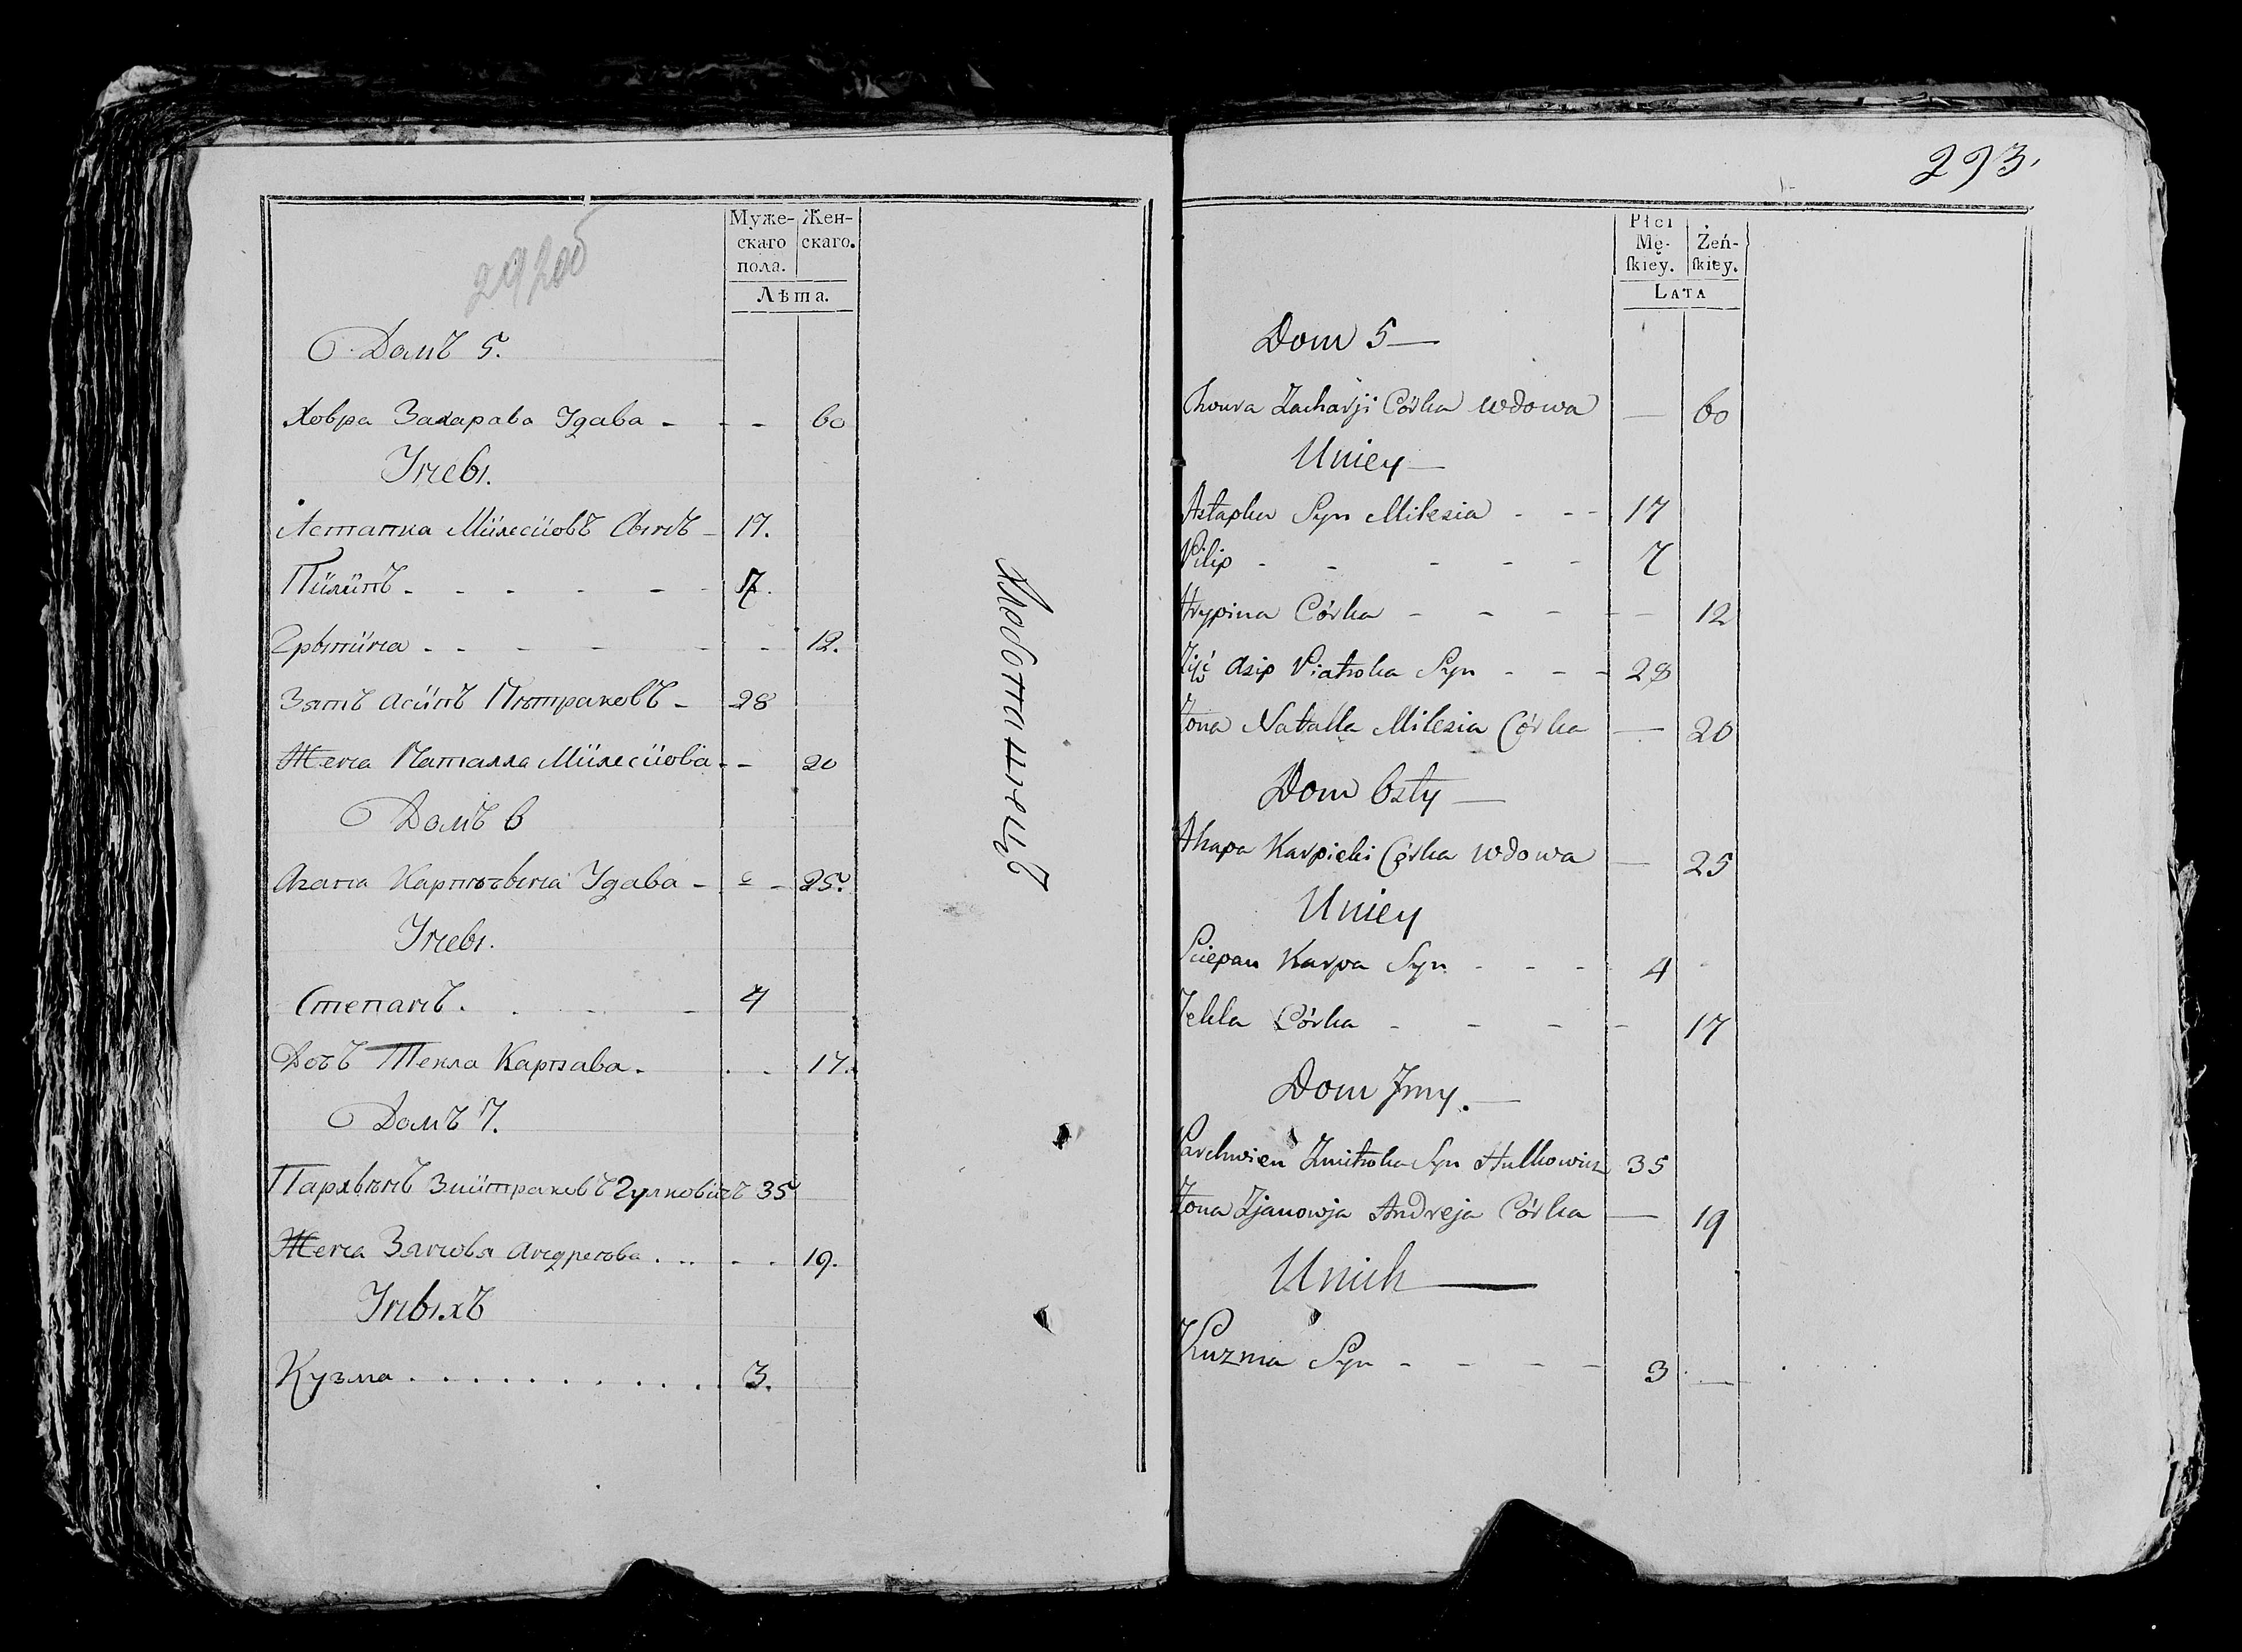 Муже-
скаго
пола.
Жен-
скаго.
Лѣта.
Домъ 5.
Ховра Захарава Удава - - - 60
Унеы.
Астапка Милесiовъ Сынъ - 17.
Пилипъ - - - - - - 7.
Грыпина - - - - - - 12.
Зять Асипъ Пѣтраковъ - 28
Жена Наталла Милесiова - - 20
Домъ 6
Агапа Карпѣевна Удава - - 25.
Унеы.
Степанъ . - - 4
Дочъ Текла Карпава. . - 17.
Домъ 7.
Пархвѣнъ Змитраковъ Гулковичъ 35
Жена Зяновя Андреева . .. - . 19.
Уныхъ
Кузма . . . . . . . . . . . 3.
293.
Płci
Mę-
ſkiey.
Żeń-
ſkiey.
LATA
Dom 5 —
Chowra Zacharji Córka wdowa — 60
Uniey —
Astapka Syn Milesia - - - 17
Pilip - - - - - 7
Hrypina Córka - - - - - 12
Zięć Asip Piatroka Syn - - - 28
Żona Natalla Milesia Córka — 20
Dom 6sty —
Ahapa Karpieki Córka wdowa — 25
Uniey
Sciepan Karpa Syn - - - 4
Tekla Córka - - - - 17
Dom 7my. —
Parchwien Zmitroka Syn Hulkowicz 35
Żona Zjanowja Andreja Córka — 19
Unich —
Kuzma Syn - - - - 3 —